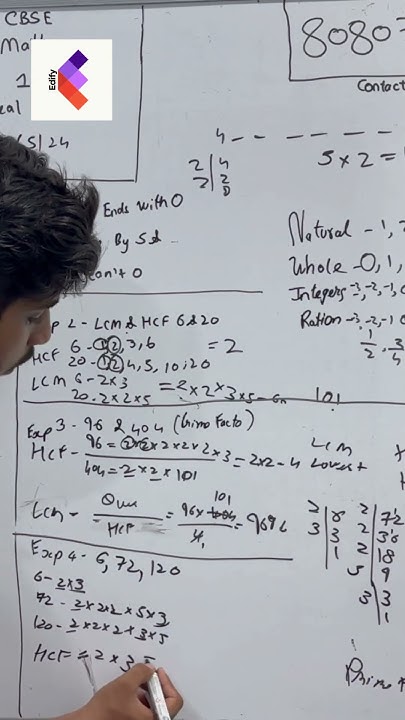 CBSE
Mat
1
eal
/5/24
Edify
8080
Contact
4 - - - - - - -
5 x 2 =
2 | 4
2 | 2
Ends with 0
By 5 &
can't 0
Natural - 1,
Whole - 0, 1,
Integers -3, -2, -1,
Ration -3, -2, -1 0
1/2 3/4
Exp 2 - LCM & HCF 6 & 20
HCF 6 - 1, 2, 3, 6 = 2
20 - 1, 2, 4, 5, 10, 20
LCM 6 - 2×3 = 2×2×3×5 = 60
20 - 2×2×5
101
Exp 3 - 96 & 404 (Prime Facto)
HCF - 96 = 2×2×2×2×2×3 = 2×2 = 4
404 = 2×2×101
LCM
Lowest
LCM - / HCF = 96 × 404 101 / 4 1 = 9696
Exp 4 - 6, 72, 120
6 - 2×3
72 - 2×2×2×5×3
120 - 2×2×2×3×5
HCF = 2×3
2 | 6
3 | 3
1
2 | 72
2 | 36
2 | 18
5 | 9
3 | 3
1
Prime